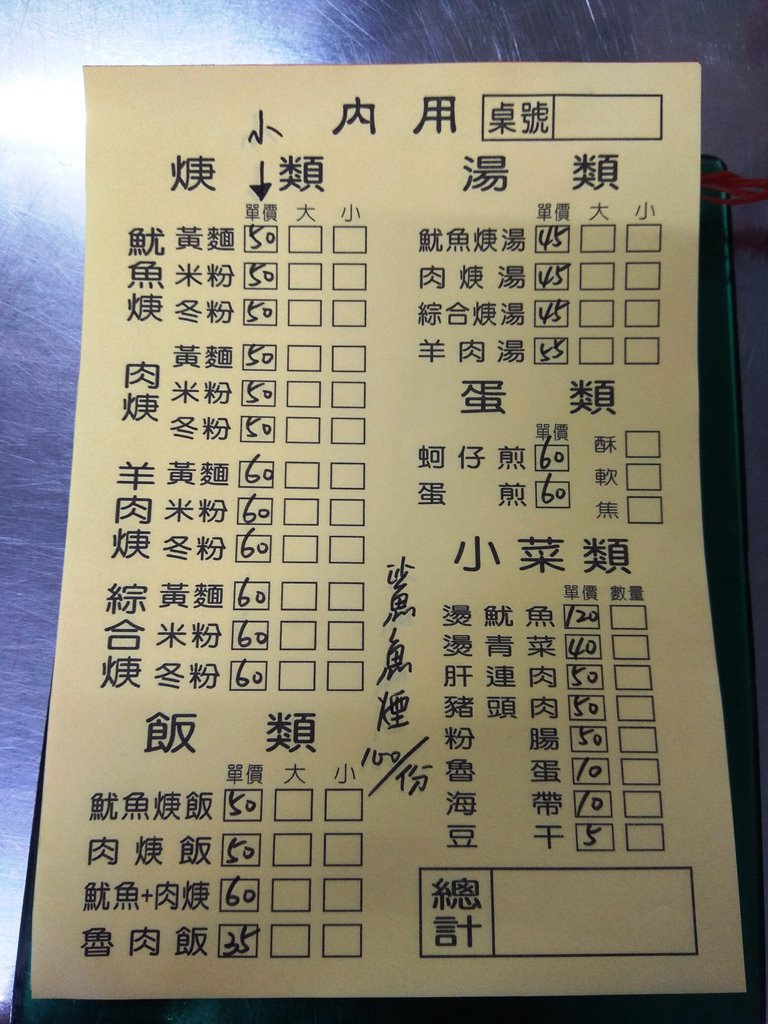 小 內用 桌號
焿類
單價 大 小
魷魚焿
黃麵 50
米粉 50
冬粉 50
肉焿
黃麵 50
米粉 50
冬粉 50
羊肉焿
黃麵 60
米粉 60
冬粉 60
綜合焿
黃麵 60
米粉 60
冬粉 60
飯類
單價 大 小
魷魚焿飯 50
肉焿飯 50
魷魚+肉焿 60
魯肉飯 35
鯊魚煙
100/份
湯類
單價 大 小
魷魚焿湯 45
肉焿湯 45
綜合焿湯 45
羊肉湯 55
蛋類
單價
蚵仔煎 60
蛋煎 60
酥
軟
焦
小菜類
單價 數量
燙魷魚 120
燙青菜 40
肝連肉 50
豬頭肉 50
粉腸 50
魯蛋 10
海帶 10
豆干 5
總計